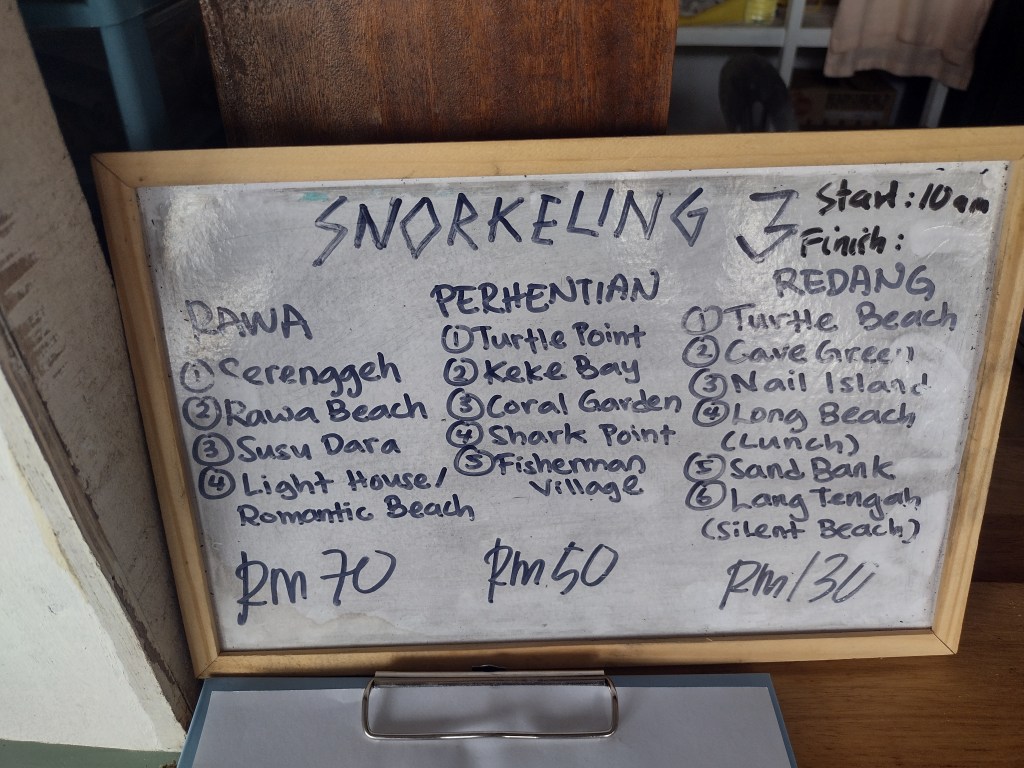 SNORKELING 3
Start: 10am
Finish:
RAWA
① Serenggeh
② Rawa Beach
③ Susu Dara
④ Light House/
Romantic Beach
RM 70
PERHENTIAN
① Turtle Point
② Keke Bay
③ Coral Garden
④ Shark Point
⑤ Fisherman
Village
RM 50
REDANG
① Turtle Beach
② Cave Green
③ Nail Island
④ Long Beach
(Lunch)
⑤ Sand Bank
⑥ Lang Tengah
(Silent Beach)
RM 130